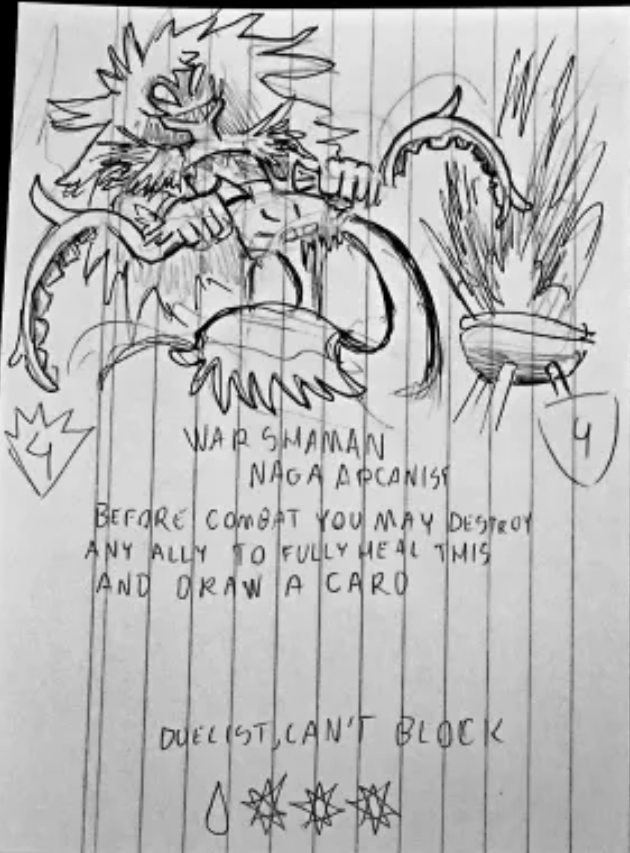 4
4
WAR SHAMAN
NAGA ARCANIST
BEFORE COMBAT YOU MAY DESTROY
ANY ALLY TO FULLY HEAL THIS
AND DRAW A CARD
DUELIST, CAN'T BLOCK